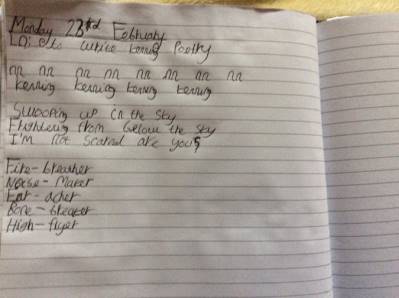 Monday 23rd February
LO: to write kenning Poetry
nn nn nn nn nn nn nn nn
kenning kenning kenning kenning
Swooping up in the sky
from below the sky
I'm not scared are you?
Fire-breather
Noise-Maker
Ear-acher
Bone-breaker
High-flyer